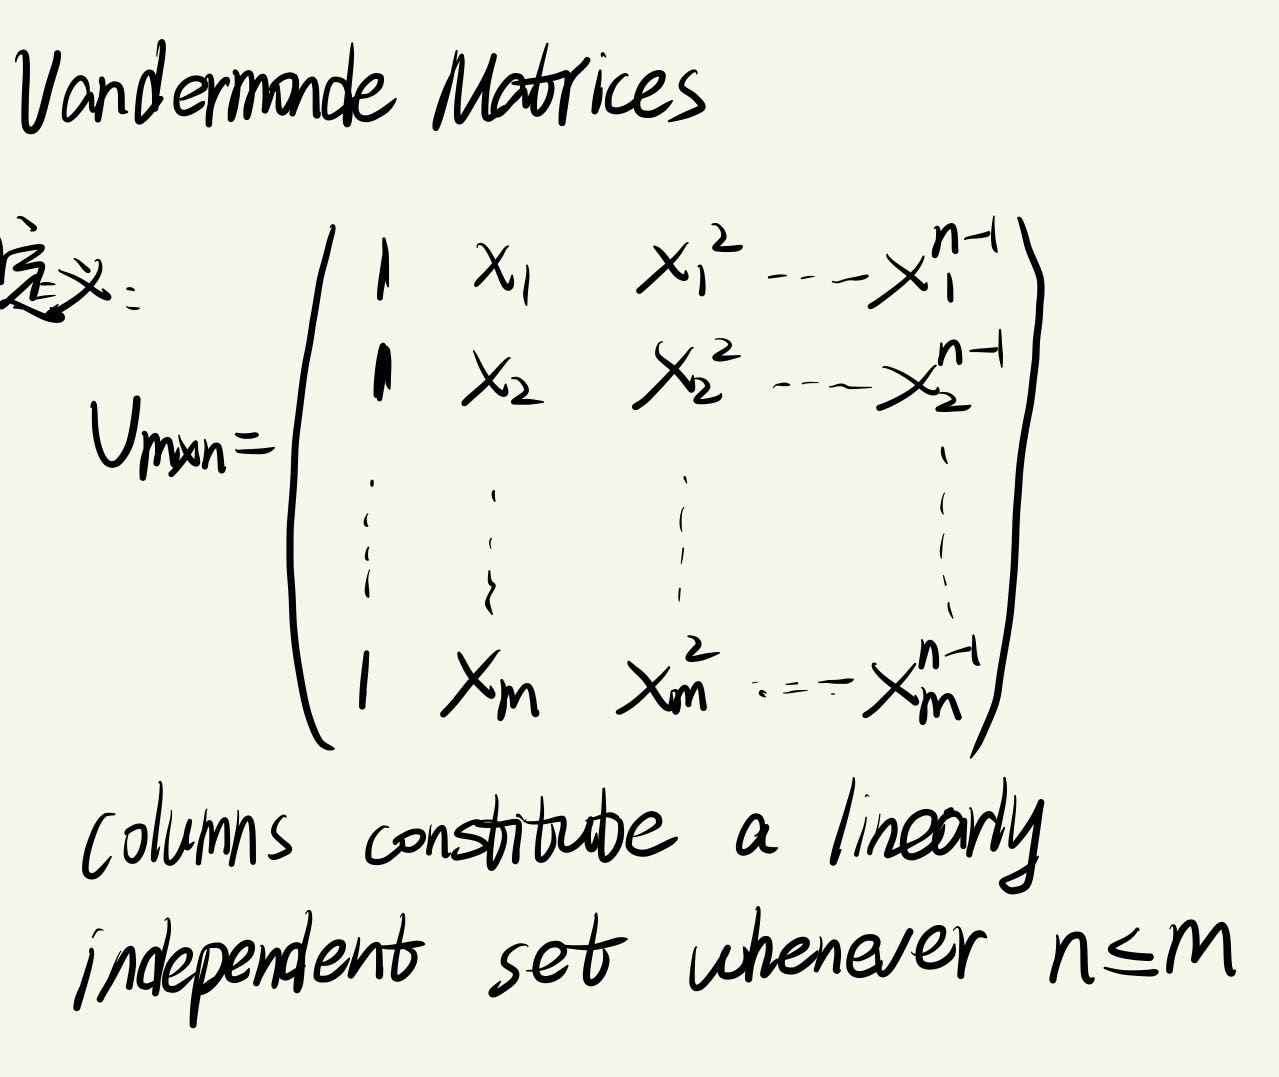 Vandermonde Matrices
定义:
1 x₁ x₁² ---- x₁ⁿ⁻¹
1 x₂ x₂² ---- x₂ⁿ⁻¹
Uₘₓₙ =
1 xₘ xₘ² ---- xₘⁿ⁻¹
columns constitube a linearly
independent set whenever n≤m